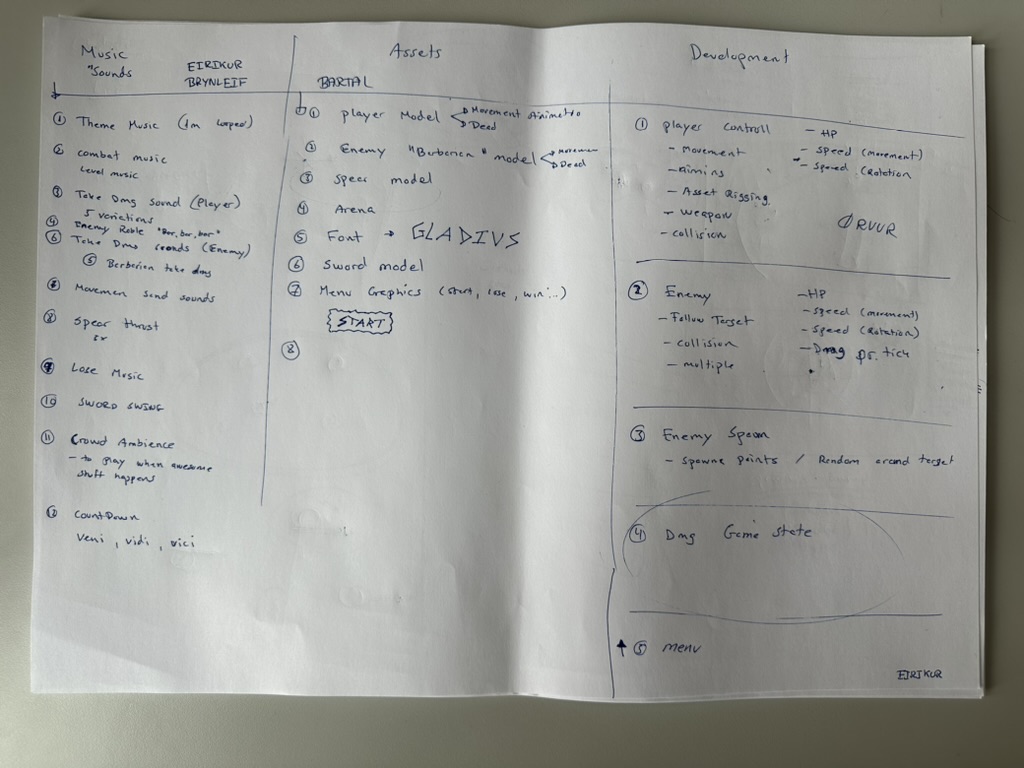 Music
"Sounds
EIRIKUR
BRYNLEIF
① Theme Music (1m looped)
② combat music
Level music
③ Take Dmg Sound (Player)
5 variations
④ Enemy Roble "Bar, bar, bar"
⑥ Take Dmg sounds (Enemy)
⑤ Berberian take dmg
Movemen sand sounds
⑧ Spear thrust
5x
⑨ Lose Music
⑩ SWORD SWING
⑪ Crowd Ambience
- to play when awesome
stuff happens
⑫ CountDown
Veni, vidi, vici
Assets
BARTAL
① Player Model Movement Animatio
Dead
② Enemy "Berberian" model Movemen
Dead
③ Spear model
④ Arena
⑤ Font → GLADIVS
⑥ Sword model
⑦ Menu Graphics (start, lose, win...)
START
⑧
Development
① player Controll - HP
- Movement - Speed (movement)
- Aiming - Speed (Rotation
- Asset Rigging
- Weapon
- collision
ØRVUR
② Enemy - HP
- Follow Target - Speed (movement)
- collision - Speed (Rotation)
- multiple - Dmg pr. tick
③ Enemy Spawn
- Spawne points / Random around target
④ Dmg Game state
⑤ Menu
EIRIKUR